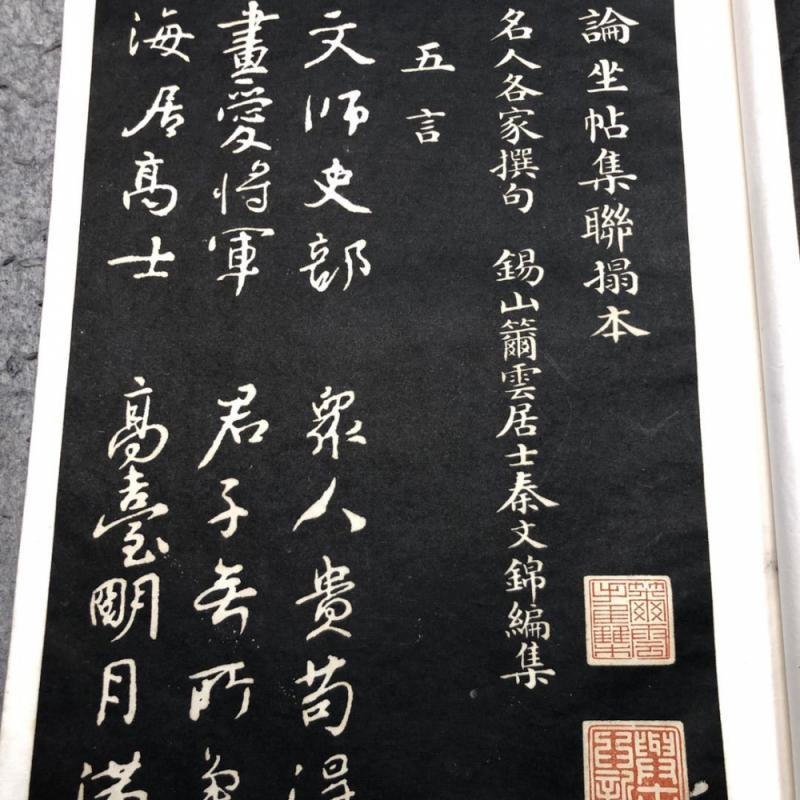 論坐帖集聯搨本
名人各家撰句 錫山籋雲居士秦文錦編集
五言
文師吏部 衆人貴苟得
畫愛將軍 君子無所爭
海居高士 高臺明月滿